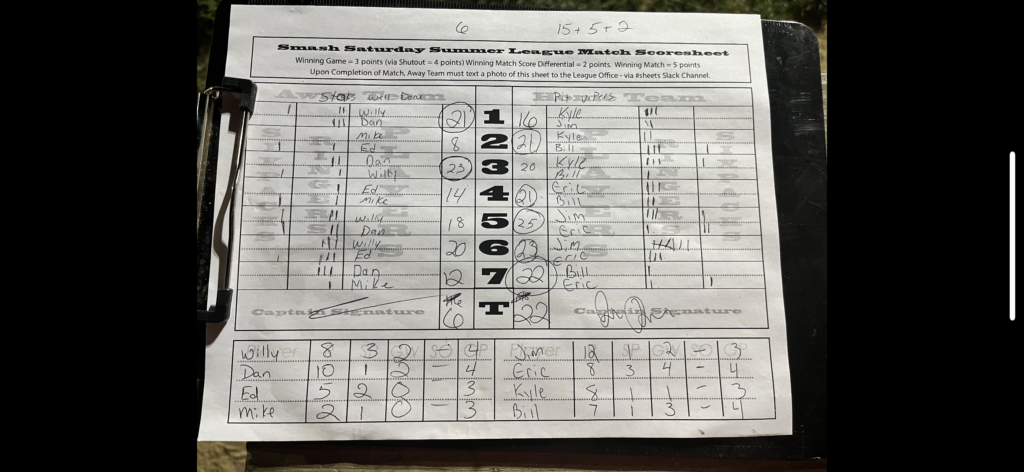 6 15 + 5 + 2
Smash Saturday Summer League Match Scoresheet
Winning Game = 3 points (via Shutout = 4 points) Winning Match Score Differential = 2 points. Winning Match = 5 points
Upon Completion of Match, Away Team must text a photo of this sheet to the League Office - via #sheets Slack Channel.
Away Team Home Team
Willy 21 1 16 Kyle
Dan Jim
Mike 8 2 21 Kyle
Ed Bill
Dan 23 3 20 Kyle
Willy Bill
Ed 14 4 21 Eric
Mike Bill
Willy 18 5 25 Jim
Dan Eric
Willy 20 6 23 Jim
Ed Eric
Dan 12 7 22 Bill
Mike Eric
Captain Signature 6 T 22 Captain Signature
Willy 8 3 2 - 4 Jim 12 1 2 - 3
Dan 10 1 2 - 4 Eric 8 3 4 - 4
Ed 5 2 0 3 Kyle 8 1 1 - 3
Mike 2 1 0 - 3 Bill 7 1 3 - 4